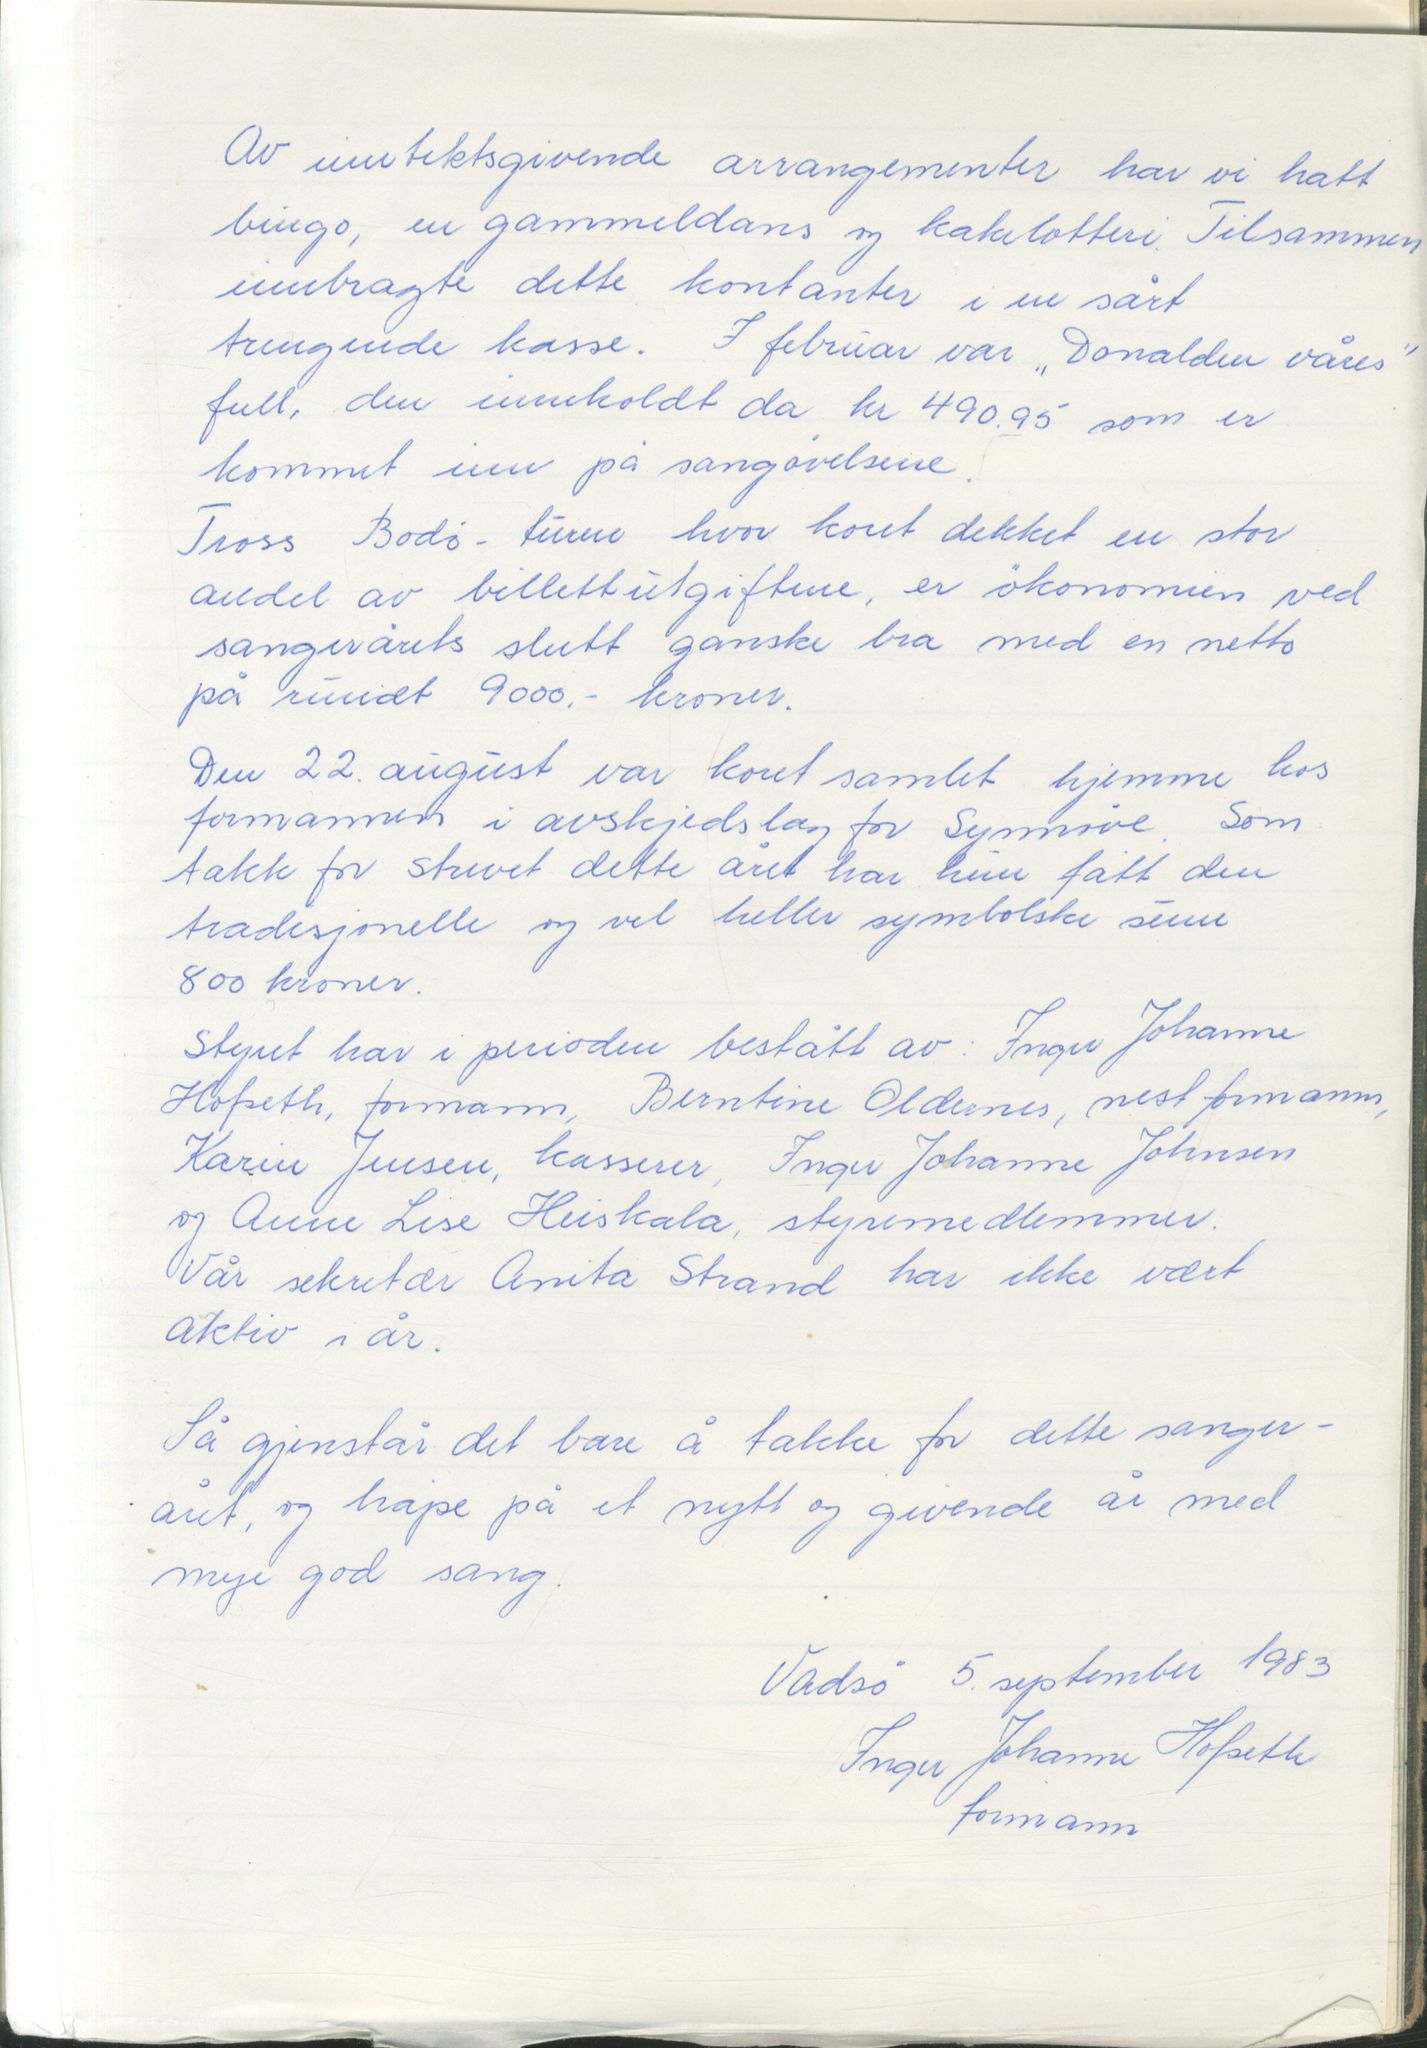 Av inntektsgivende arrangementer har vi hatt
bingo, en gammeldans og kakelotteri. Tilsammen
innbragte dette kontanter i en sårt
trengende kasse. I februar var „Donalden våres"
full, den inneholdt da kr 490.95 som er
kommet inn på sangøvelsene.
Tross Bodö-turen hvor koret dekket en stor
andel av billettutgiftene, er ökonomien ved
sangerårets slutt ganske bra med en netto
på rundt 9000.- kroner.
Den 22. august var koret samlet hjemme hos
formannen i avskjedslag for Synnöve. Som
takk for strevet dette året har hun fått den
tradisjonelle og vel heller symbolske sum
800 kroner.
Styret har i perioden bestått av: Inger Johanne
Hofseth, formann, Berntine Oldernes, nestformann,
Karin Jensen, kasserer, Inger Johanne Johnsen
og Anne Lise Heiskala, styremedlemmer.
Vår sekretær Anita Strand har ikke vært
aktiv i år.
Så gjenstår det bare å takke for dette sanger-
året, og håpe på et nytt og givende år med
mye god sang.
Vadsö 5. september 1983
Inger Johanne Hofseth
formann